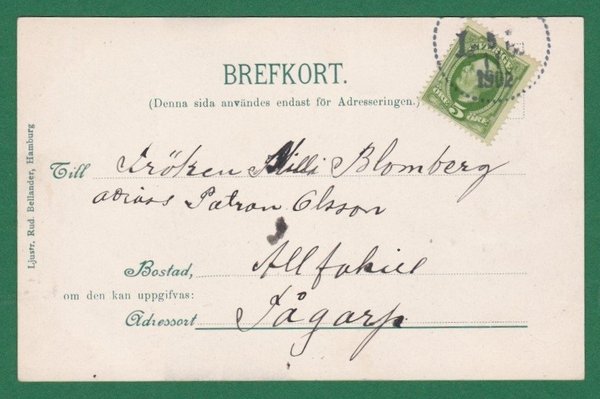 1902
SVERIGE
ÖRE 5 ÖRE
BREFKORT.
(Denna sida användes endast för Adresseringen.)
Till Fröken Milli Blomberg
adrss Patron Olsson
Bostad,
om den kan uppgifvas:
Adressort Fågarp
Ljustr. Rud. Bellander, Hamburg